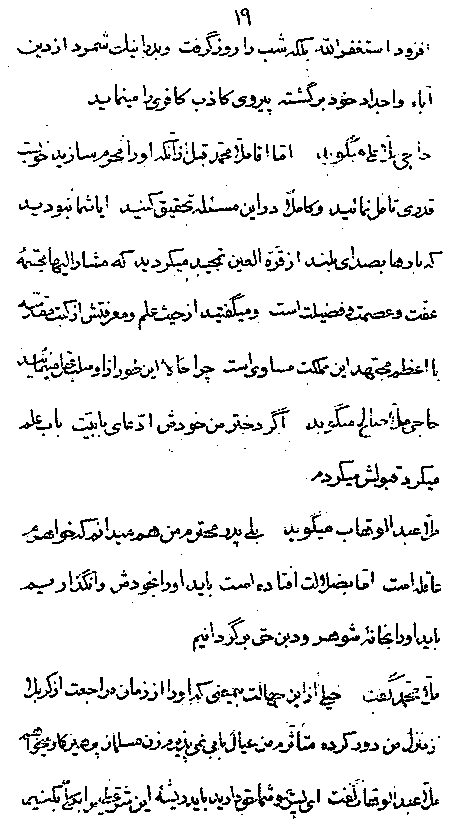 ۱۹
افزود استغفرالله بلکه شب را روز گرفت و بد را نیک شمرد از دین
آباء و اجداد خود برگشته پیروی کاذب کافری را مینماید
حاجی ملا علی میگوید اما اقا ملا محمد قبل از آنکه او را مجرم سازید خوبست
قدری تامل نمائید و کاملاً در این مسئله تحقیق کنید ایا شما نبودید
که بارها بصدای بلند از قرة العین تمجید میکردید که مشار الیها مجسمهٔ
عفت و عصمت و فضیلت است و میگفتید از حیث علم و معرفتش از کتب مقدسه
با اعظم مجتهد این مملکت مساوی است چرا حالا این طور از او سلب فضل مینمائید
حاجی ملا صالح میگوید اگر دختر من خودش ادعای بابیت باب علم
میکرد قبولش میکردم
ملا عبد الوهاب میگوید بلی پدر محترم من هم میدانم که خواهرم
عاقله است اما بضلالت افتاده است باید او را بخودش وانگذاریم
باید او را بخانهٔ شوهر و دین حق برگردانیم
ملا محمد گفت خیلی از این جهالت بیمعنی که او را از زمان مراجعت از کربلا
از منزل من دور کرده متأثرم من عیال بابی نمی پذیرم زن مسلمان پرهیزکار میخواهم
ملا عبد الوهاب گفت ای شما حق دارید باید ریشهٔ این شر را بکلی بکنیم